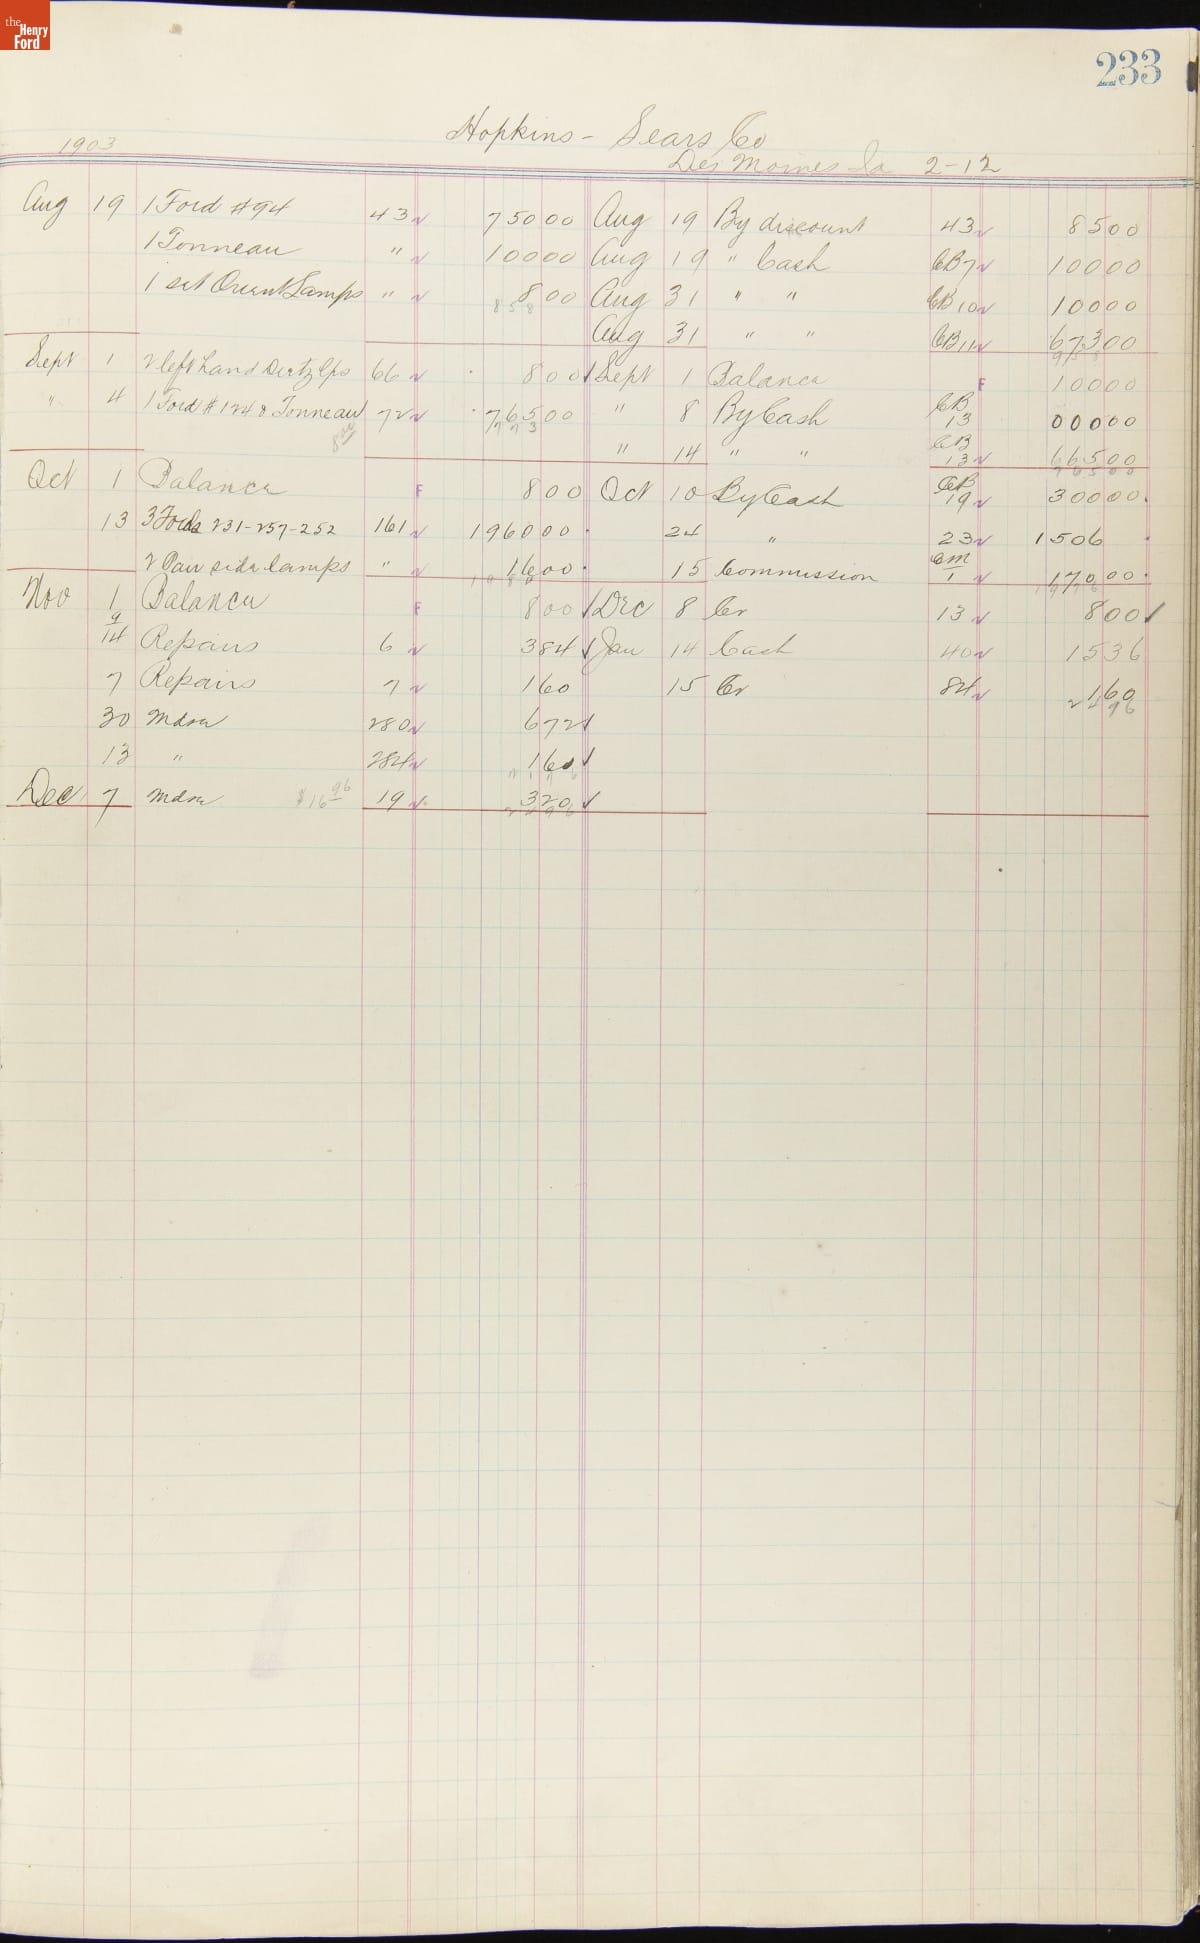 the Henry Ford
233
Hopkins - Sears Co
1903 Des Moines Ia 2-12
Aug 19 1 Ford #94 43 750 00 Aug 19 By discount 43 85 00
1 Tonneau " 100 00 Aug 19 " Cash CB7 100 00
1 set Lamps " 8 00 Aug 31 " " CB10 100 00
858
Aug 31 " " CB11 673 00
Sept 1 2 left hand Dietz Lps 66 8 00 Sept 1 Balance F 100 00
" 4 1 Ford #124 & Tonneau 72 765 00 " 8 By Cash CB 13 000 00
773
8 00 " 14 " " CB 13 665 00
Oct 1 Balance F 8 00 Oct 10 By Cash CB 19 300 00
13 3 Fords 231-257-252 161 1960 00 24 " 23 1506
2 Pair side lamps " 16 00 15 Commission CM 1 170 00
Nov 1 Balance F 8 00 Dec 8 Cr 13 8 00
9
14 Repairs 6 3 84 Jan 14 Cash 40 15 36
7 Repairs 7 1 60 15 Cr 84 1 60
24 96
30 Mdse 280 6 72
13 " 284 1 60
Dec 7 Mdse $16 96 19 3 20
24 96